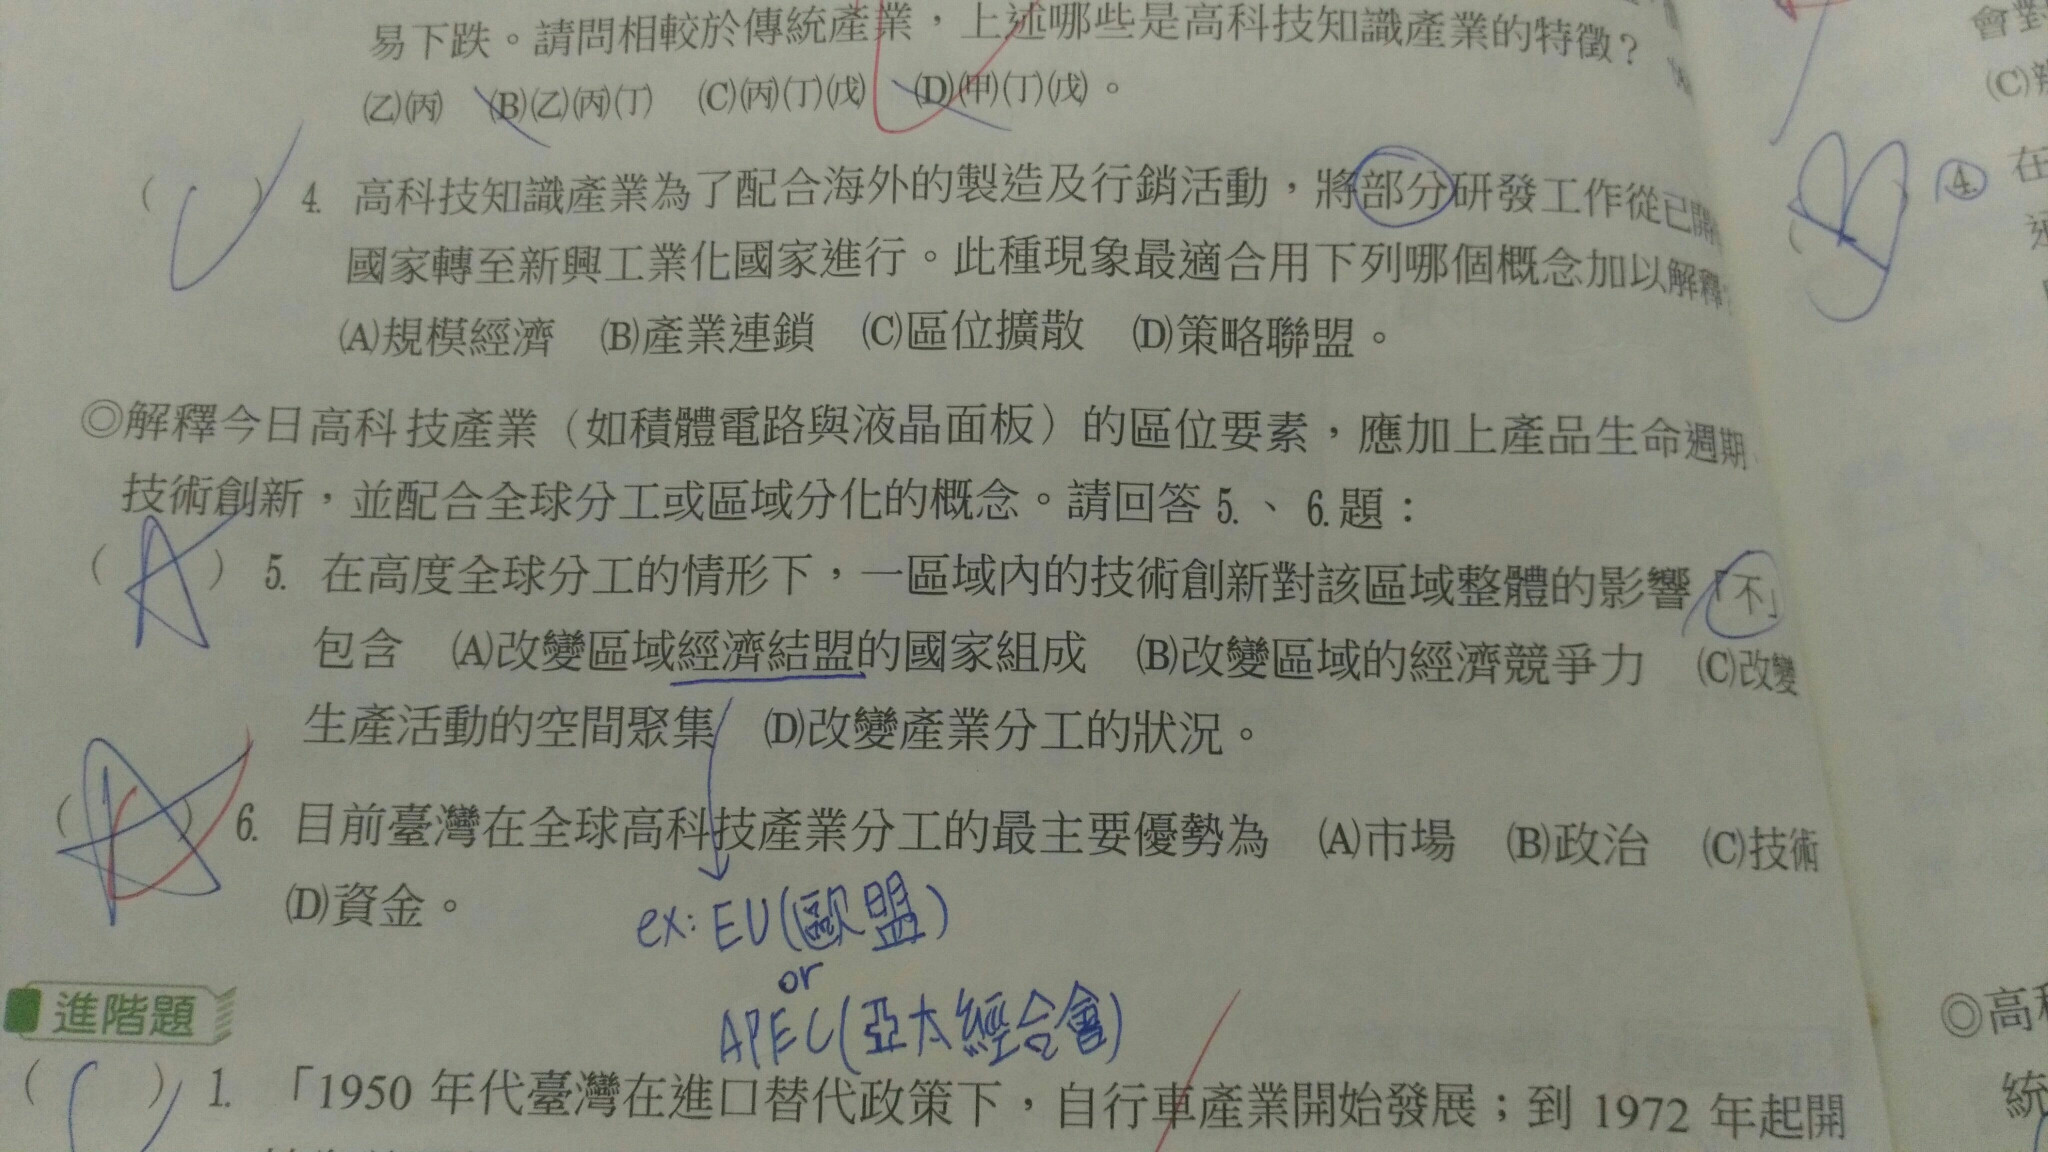 易下跌。請問相較於傳統產業，上述哪些是高科技知識產業的特徵？
(乙)(丙) (B)(乙)(丙)(丁) (C)(丙)(丁)(戊) (D)(甲)(丁)(戊)。
( C ) 4. 高科技知識產業為了配合海外的製造及行銷活動，將部分研發工作從已開
國家轉至新興工業化國家進行。此種現象最適合用下列哪個概念加以解釋
(A)規模經濟 (B)產業連鎖 (C)區位擴散 (D)策略聯盟。
◎解釋今日高科技產業（如積體電路與液晶面板）的區位要素，應加上產品生命週期
技術創新，並配合全球分工或區域分化的概念。請回答 5.、6.題：
( A ) 5. 在高度全球分工的情形下，一區域內的技術創新對該區域整體的影響「不」
包含 (A)改變區域經濟結盟的國家組成 (B)改變區域的經濟競爭力 (C)改變
生產活動的空間聚集 (D)改變產業分工的狀況。
( ) 6. 目前臺灣在全球高科技產業分工的最主要優勢為 (A)市場 (B)政治 (C)技術
(D)資金。
ex: EU(歐盟)
or
APEC(亞太經合會)
進階題
( C ) 1. 「1950 年代臺灣在進口替代政策下，自行車產業開始發展；到 1972 年起開
會對
(C)
4. 在
◎高科
統